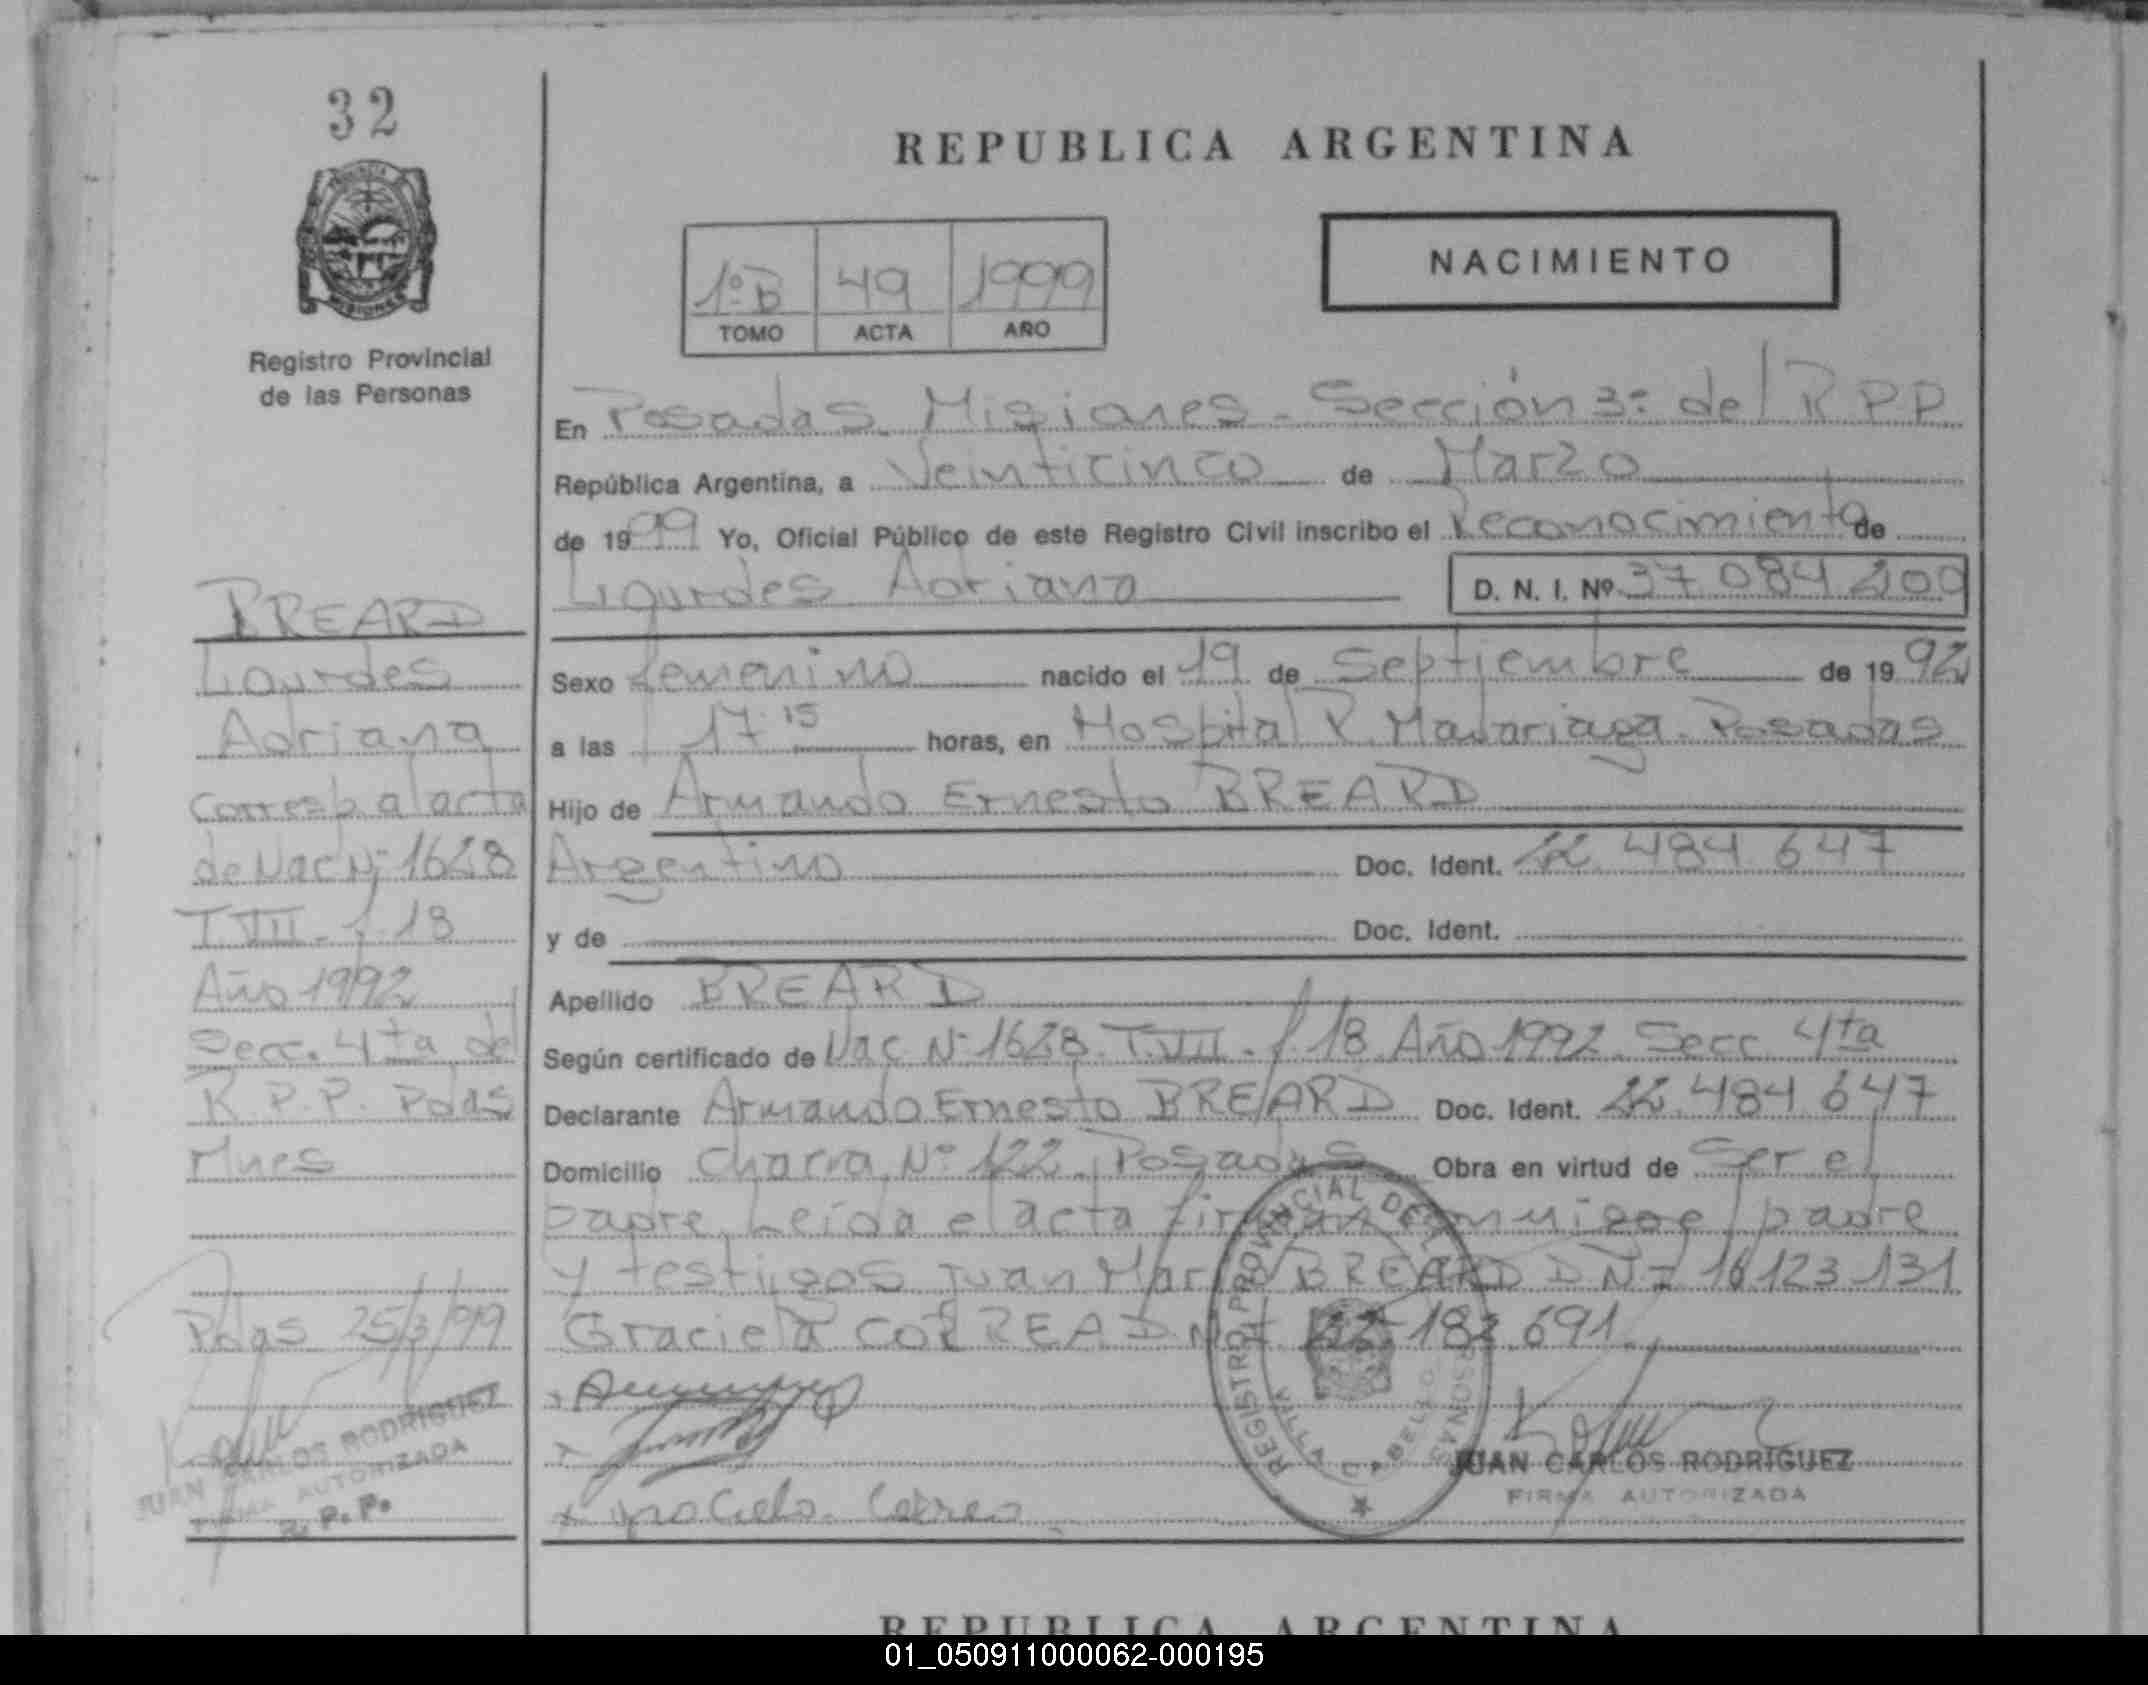 32
REPUBLICA ARGENTINA
1º B 49 1999
TOMO ACTA AÑO
NACIMIENTO
Registro Provincial
de las Personas
En Posadas Misiones - Sección 3º del R P P
República Argentina, a Veinticinco de Marzo
de 1999 Yo, Oficial Público de este Registro Civil inscribo el Reconocimiento de
Lourdes Adriana D. N. I. Nº 37 084 200
Sexo femenino nacido el 19 de Septiembre de 1992
a las 17.15 horas, en Hospital R. Madariaga. Posadas
Hijo de Armando Ernesto BREARD
Argentino Doc. Ident. 22 484 647
y de Doc. Ident.
Apellido BREARD
Según certificado de Nac Nº 1628 T. VII - f. 18 Año 1992 Secc 4ta
Declarante Armando Ernesto BREARD Doc. Ident. 22 484 647
Domicilio Chacra Nº 122 Posadas Obra en virtud de Ser el
padre. Leída el acta firman conmigo el padre
y testigos Juan Mario BREARD DNI 16 123 131
Graciela CORREA DNI 22 182 691
BREARD
Lourdes
Adriana
Corresp. al acta
de Nac Nº 1628
T VII - f. 18
Año 1992
Secc. 4ta del
R. P. P. Pdas
Mnes
Pdas 25/3/99
JUAN CARLOS RODRIGUEZ
FIRMA AUTORIZADA
R. P. P.
REGISTRO PROVINCIAL DE LAS PERSONAS
VILLA CABELLO
JUAN CARLOS RODRIGUEZ
FIRMA AUTORIZADA
REPUBLICA ARGENTINA
01_050911000062-000195